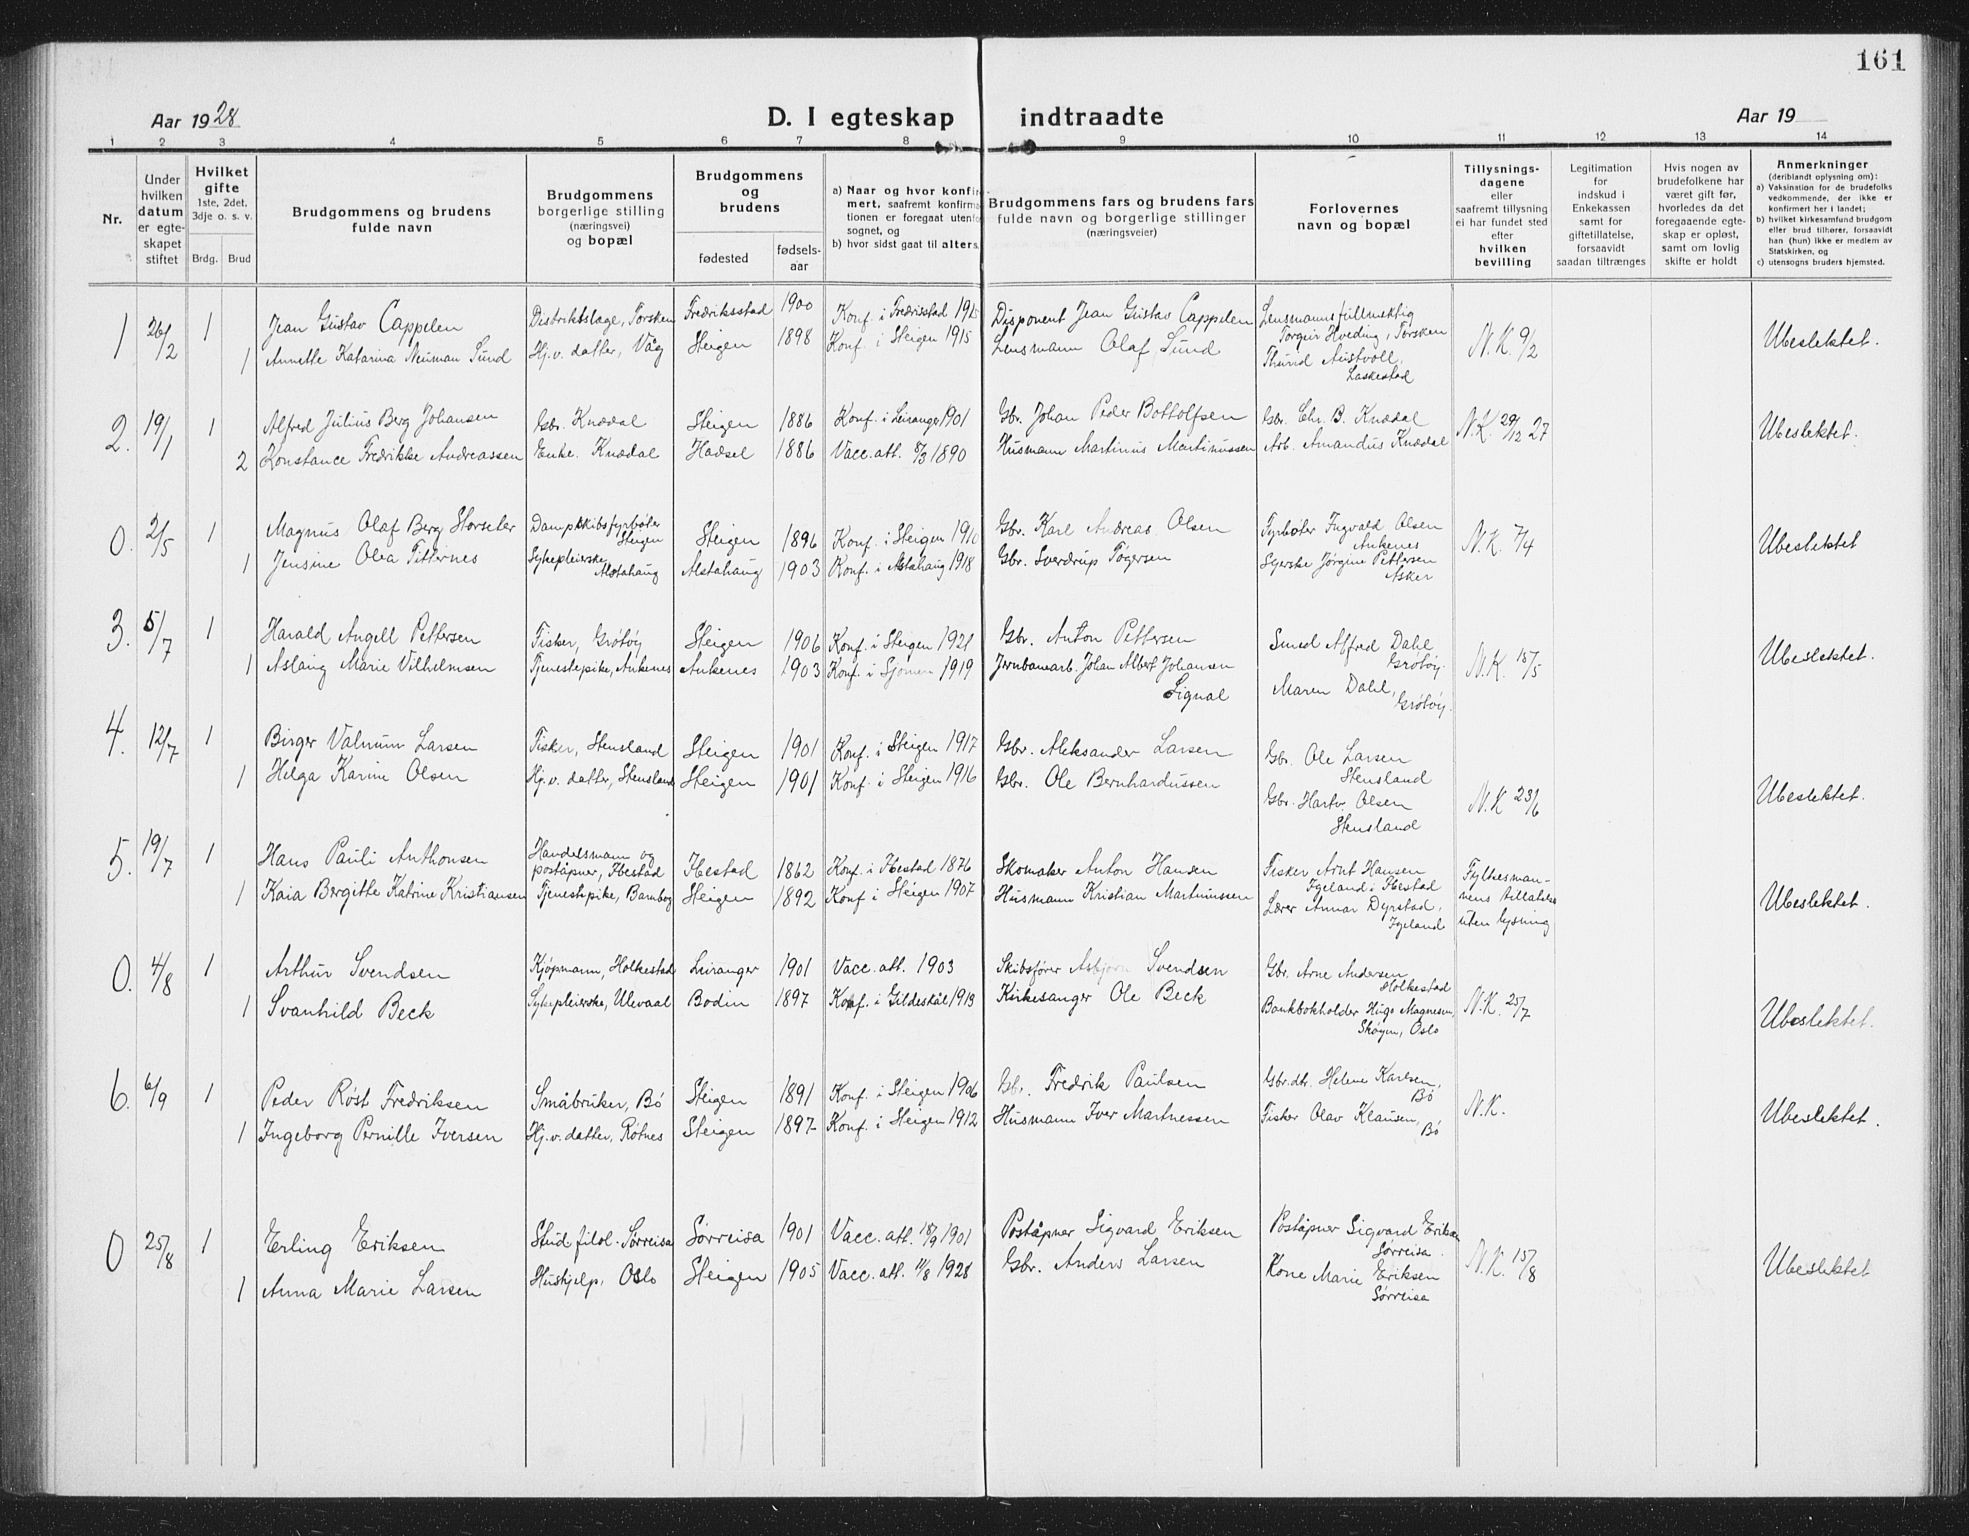 161
Aar 1928
D. I egteskap indtraadte
Aar 19
1 2 3 4 5 6 7 8 9 10 11 12 13 14
Nr.
Under
hvilken
datum
er egte-
skapet
stiftet
Hvilket
gifte
1ste, 2det,
3dje o. s. v.
Brdg. Brud
Brudgommens og brudens
fulde navn
Brudgommens
borgerlige stilling
(næringsvei)
og bopæl
Brudgommens
og
brudens
fødested
fødsels-
aar
a) Naar og hvor konfir-
mert, saafremt konfirma-
tionen er foregaat utenfor
sognet, og
b) hvor sidst gaat til alters.
Brudgommens fars og brudens fars
fulde navn og borgerlige stillinger
(næringsveier)
Forlovernes
navn og bopæl
Tillysnings-
dagene
eller
saafremt tillysning
ei har fundet sted
efter
hvilken
bevilling
Legitimation
for
indskud i
Enkekassen
samt for
giftetillatelse,
forsaavidt
saadan tiltrænges
Hvis nogen av
brudefolkene har
været gift før,
hvorledes da det
foregaaende egte-
skap er opløst,
samt om lovlig
skifte er holdt
Anmerkninger
(deriblandt oplysning om):
a) Vaksination for de brudefolks
vedkommende, der ikke er
konfirmert her i landet;
b) hvilket kirkesamfund brudgom
eller brud tilhører, forsaavidt
han (hun) ikke er medlem av
Statskirken, og
c) utensogns bruders hjemsted.
1 26/2 1 Jean Gustav Cappelen Distriktslæge, Torsken Fredriksstad 1900 Konf. i Fredrisstad 1915 Disponent Jean Gustav Cappelen Lensmannsfullmektig
Torgeir Hveding, Torsken
1 Annette Katarina Neuman Sund Hj.v. datter, Våg Steigen 1898 Konf. i Steigen 1915 Lensmann Olaf Sund Thurid Austvoll,
Laskestad
N.K. 9/2 Ubeslektet.
2. 19/1 1 Alfred Julius Berg Johansen Gbr. Knædal Steigen 1886 Konf. i Leiranger 1901 Gbr. Johan Peder Bottolfsen Gbr. Chr. B. Knædal N.K. 29/12 27 Ubeslektet.
2 Konstance Fredrikke Andreassen Enke. Knædal Hadsel 1886 Vacc. att. 8/3 1890 Husmann Martinus Martinussen Arb. Amandus Knædal
0. 2/5 1 Magnus Olaf Berg Storseter Dampskibsfyrbøter
Steigen Steigen 1896 Konf. i Steigen 1910 Gbr. Karl Andreas Olsen Fyrbøter Ingvald Olsen
Ankenes N.K. 7/4 Ubeslektet
1 Jensine Olea Titternes Sykepleierske
Alstahaug Alstahaug 1903 Konf. i Alstahaug 1918 Gbr. Sverdrup Tøgersen Syerske Jørgine Pettersen
Asker
3. 5/7 1 Harald Angell Pettersen Fisker, Grøtøy Steigen 1906 Konf. i Steigen 1921 Gbr. Anton Pettersen Smed Alfred Dahl
Grøtøy
1 Aslaug Marie Vilhelmsen Tjenestepike, Ankenes Ankenes 1903 Konf. i Sjømen 1919 Jernbanearb. Johan Albert Johansen
Signal Maren Dahl,
Grøtøy. N.K. 15/5 Ubeslektet.
4. 12/7 1 Birger Valnum Larsen Fisker, Stensland Steigen 1901 Konf. i Steigen 1917 Gbr. Aleksander Larsen Gbr. Ole Larsen
Stensland
1 Helga Karine Olsen Hj.v. datter, Stensland Steigen 1901 Konf. i Steigen 1916 Gbr. Ole Bernhardussen Gbr. Hartv. Olsen
Stensland N.K 23/6 Ubeslektet.
5. 19/7 1 Hans Pauli Anthonsen Handelsmann og
poståpner, Ibestad Ibestad 1862 Konf. i Ibestad 1876 Skomaker Anton Hansen Fisker Arnt Hansen
Igeland i Ibestad Fylkesman-
1 Kaia Bergitte Katrine Kristiansen Tjenestepike, Barnbog Steigen 1892 Konf. i Steigen 1907 Husmann Kristian Martinussen Lærer Annar Dyrstad,
Igeland nens tillatelse
uten lysning Ubeslektet.
0. 4/8 1 Arthur Svendsen Kjøpmann, Holkestad Leiranger 1901 Vacc. att. 1903 Skibsfører Asbjørn Svendsen Gbr. Arne Andersen
Holkestad
1 Svanhild Beck Sykepleierske, Ulevaal Bodin 1897 Konf. i Gildeskål 1913 Kirkesanger Ole Beck Bankbokholder Hugo Magnesen,
Skøyen, Oslo N.K. 25/7 Ubeslektet.
6. 6/9 1 Peder Røst Fredriksen Småbruker, Bø Steigen 1891 Konf. i Steigen 1906 Gbr. Fredrik Paulsen Gbr.dtr. Helene Karlsen,
Bø
1 Ingeborg Pernille Iversen Hj.v. datter, Røtnes Steigen 1897 Konf. i Steigen 1912 Husmann Iver Martnessen Fisker Olav Klausen,
Bø N.K. Ubeslektet.
0 25/8 1 Erling Eriksen Stud filol. Sørreisa Sørreisa 1901 Vacc. att. 18/9 1901 Poståpner Sigvard Eriksen Poståpner Sigvard Eriksen
Sørreisa.
1 Anna Marie Larsen Hushjelp, Oslo Steigen 1905 Vacc. att. 11/8 1928 Gbr. Anders Larsen Kone Marie Eriksen
Sørreisa N.K. 15/8 Ubeslektet